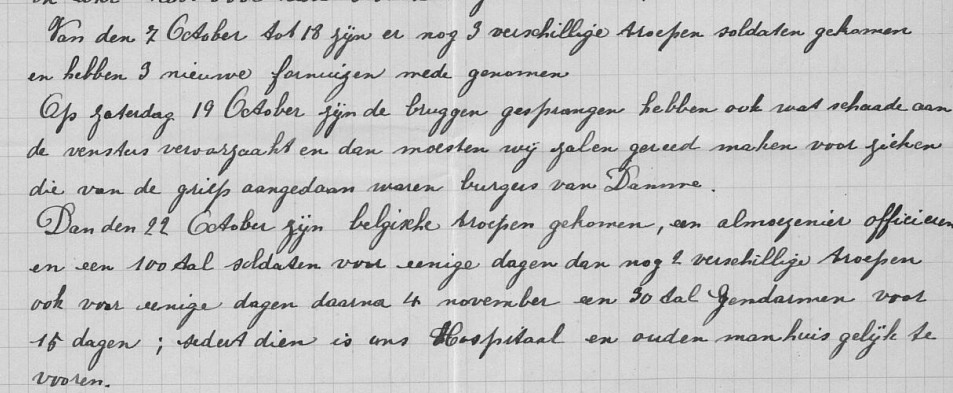 Van den 7 October tot 18 zijn er nog 3 verschillige troepen soldaten gekomen
en hebben 3 nieuwe fornuizen mede genomen
Op zaterdag 19 October zijn de bruggen gesprongen hebben ook wat schaade aan
de vensters veroorzaakt en dan moesten wij zalen gereed maken voor zieken
die van de griep aangedaan waren burgers van Damme.
Dan den 22 October zijn belgische troepen gekomen, een almoezenier officieren
en een 100 tal soldaten voor eenige dagen dan nog 2 verschillige troepen
ook voor eenige dagen daarna 4 november een 30 tal Gendarmen voor
15 dagen ; sedert dien is ons Hospitaal en ouden manhuis gelijk te
vooren.